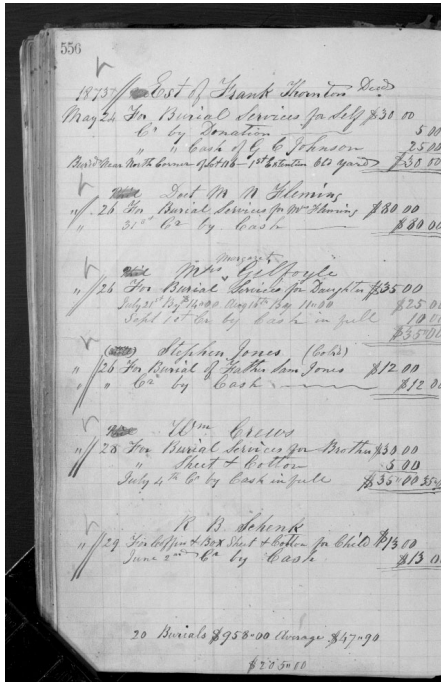 556
1875 Est of Frank Thornton Decd
May 24 For Burial Services for Self $30 00
Cr by Donation 5 00
" " Cash of G C Johnson 25 00
Buried Near North Corner of Lot 1st Extention Old Yard $30 00
Doct M N Fleming
" 26 For Burial Services for Mrs Fleming $80 00
" 31st Cr by Cash $80 00
Mrs Margaret Gilfoyle
" 26 For Burial Services for Daughter $35 00
July 21st By $14 00 Aug 16th By 11 00 $25 00
Sept 1st Cr by Cash in full 10 00
$35 00
Stephen Jones (Cold)
" 26 For Burial of Father Sam Jones $12 00
" " Cr by Cash $12 00
Wm Crews
" 28 For Burial Services for Brother $30 00
" Sheet & Cotton 5 00
July 4th Cr by Cash in full $35 00 35 00
R. B. Schenk
" 29 For Coffin & Box Sheet & Cotton for Child $13 00
June 2nd Cr by Cash $13 00
20 Burials $958 00 Average $47 90
$205 00